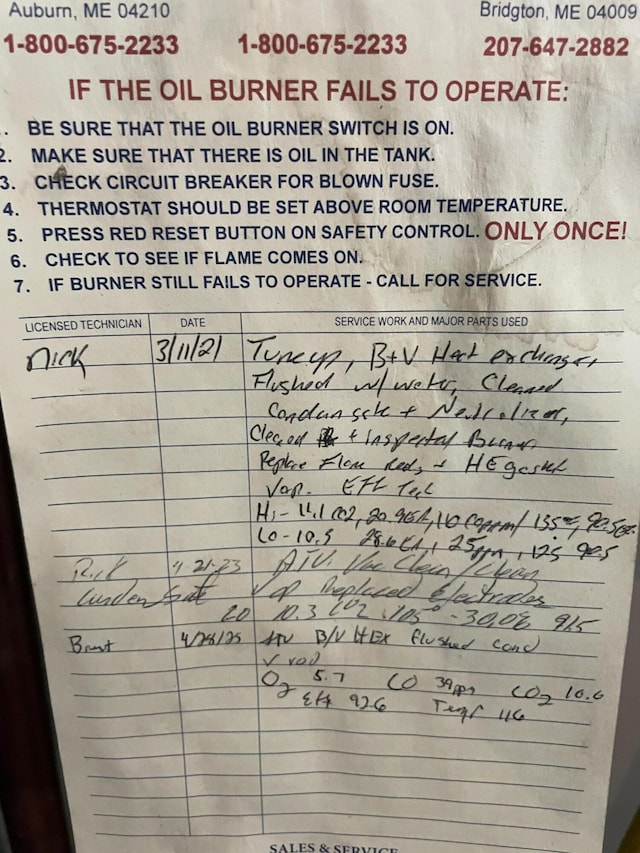 Auburn, ME 04210 Bridgton, ME 04009
1-800-675-2233 1-800-675-2233 207-647-2882
IF THE OIL BURNER FAILS TO OPERATE:
. BE SURE THAT THE OIL BURNER SWITCH IS ON.
2. MAKE SURE THAT THERE IS OIL IN THE TANK.
3. CHECK CIRCUIT BREAKER FOR BLOWN FUSE.
4. THERMOSTAT SHOULD BE SET ABOVE ROOM TEMPERATURE.
5. PRESS RED RESET BUTTON ON SAFETY CONTROL. ONLY ONCE!
6. CHECK TO SEE IF FLAME COMES ON.
7. IF BURNER STILL FAILS TO OPERATE - CALL FOR SERVICE.
LICENSED TECHNICIAN DATE SERVICE WORK AND MAJOR PARTS USED
Nick 3/11/21 Tuneup, B+V Heat exchanger
Flushed w/ water, Cleaned
Condensate + Neutralizer,
Cleaned + inspected Burner
Replace Flame Rods + HE gasket
Vap. Eff Test
Hi- 11.1 CO2, 20.9EA, 110 COppm/ 135°F, 90.5
Lo- 10.5 28.6 EA, 25ppm, 125 90.5
Rick 4-21-23 Vac Clean/Clean
Replaced Electrodes
20 10.3 CO2 105° - 30.0% 91.5
Brent 4/28/25 B/V HEX flushed cond
✓
O2 5.7 CO 39ppm CO2 10.6
Eff 92.6 Temp 116
SALES & SERVICE